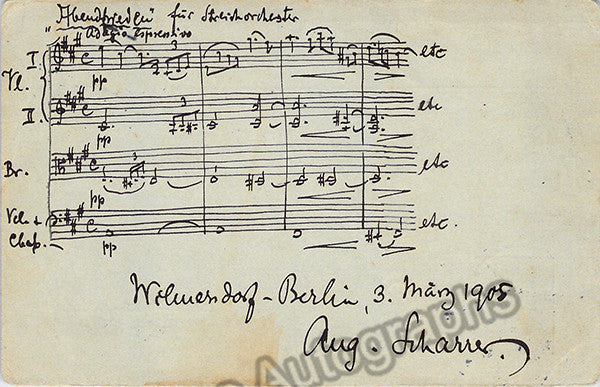 "Abendfrieden" für Streichorchester
Adagio Espressivo
I. etc
Vl.
pp
II. etc
pp
Br. etc
pp
Vcl. + etc.
pp
Wilmersdorf-Berlin, 3. März 1905
Aug. Scharrer.
Autographs